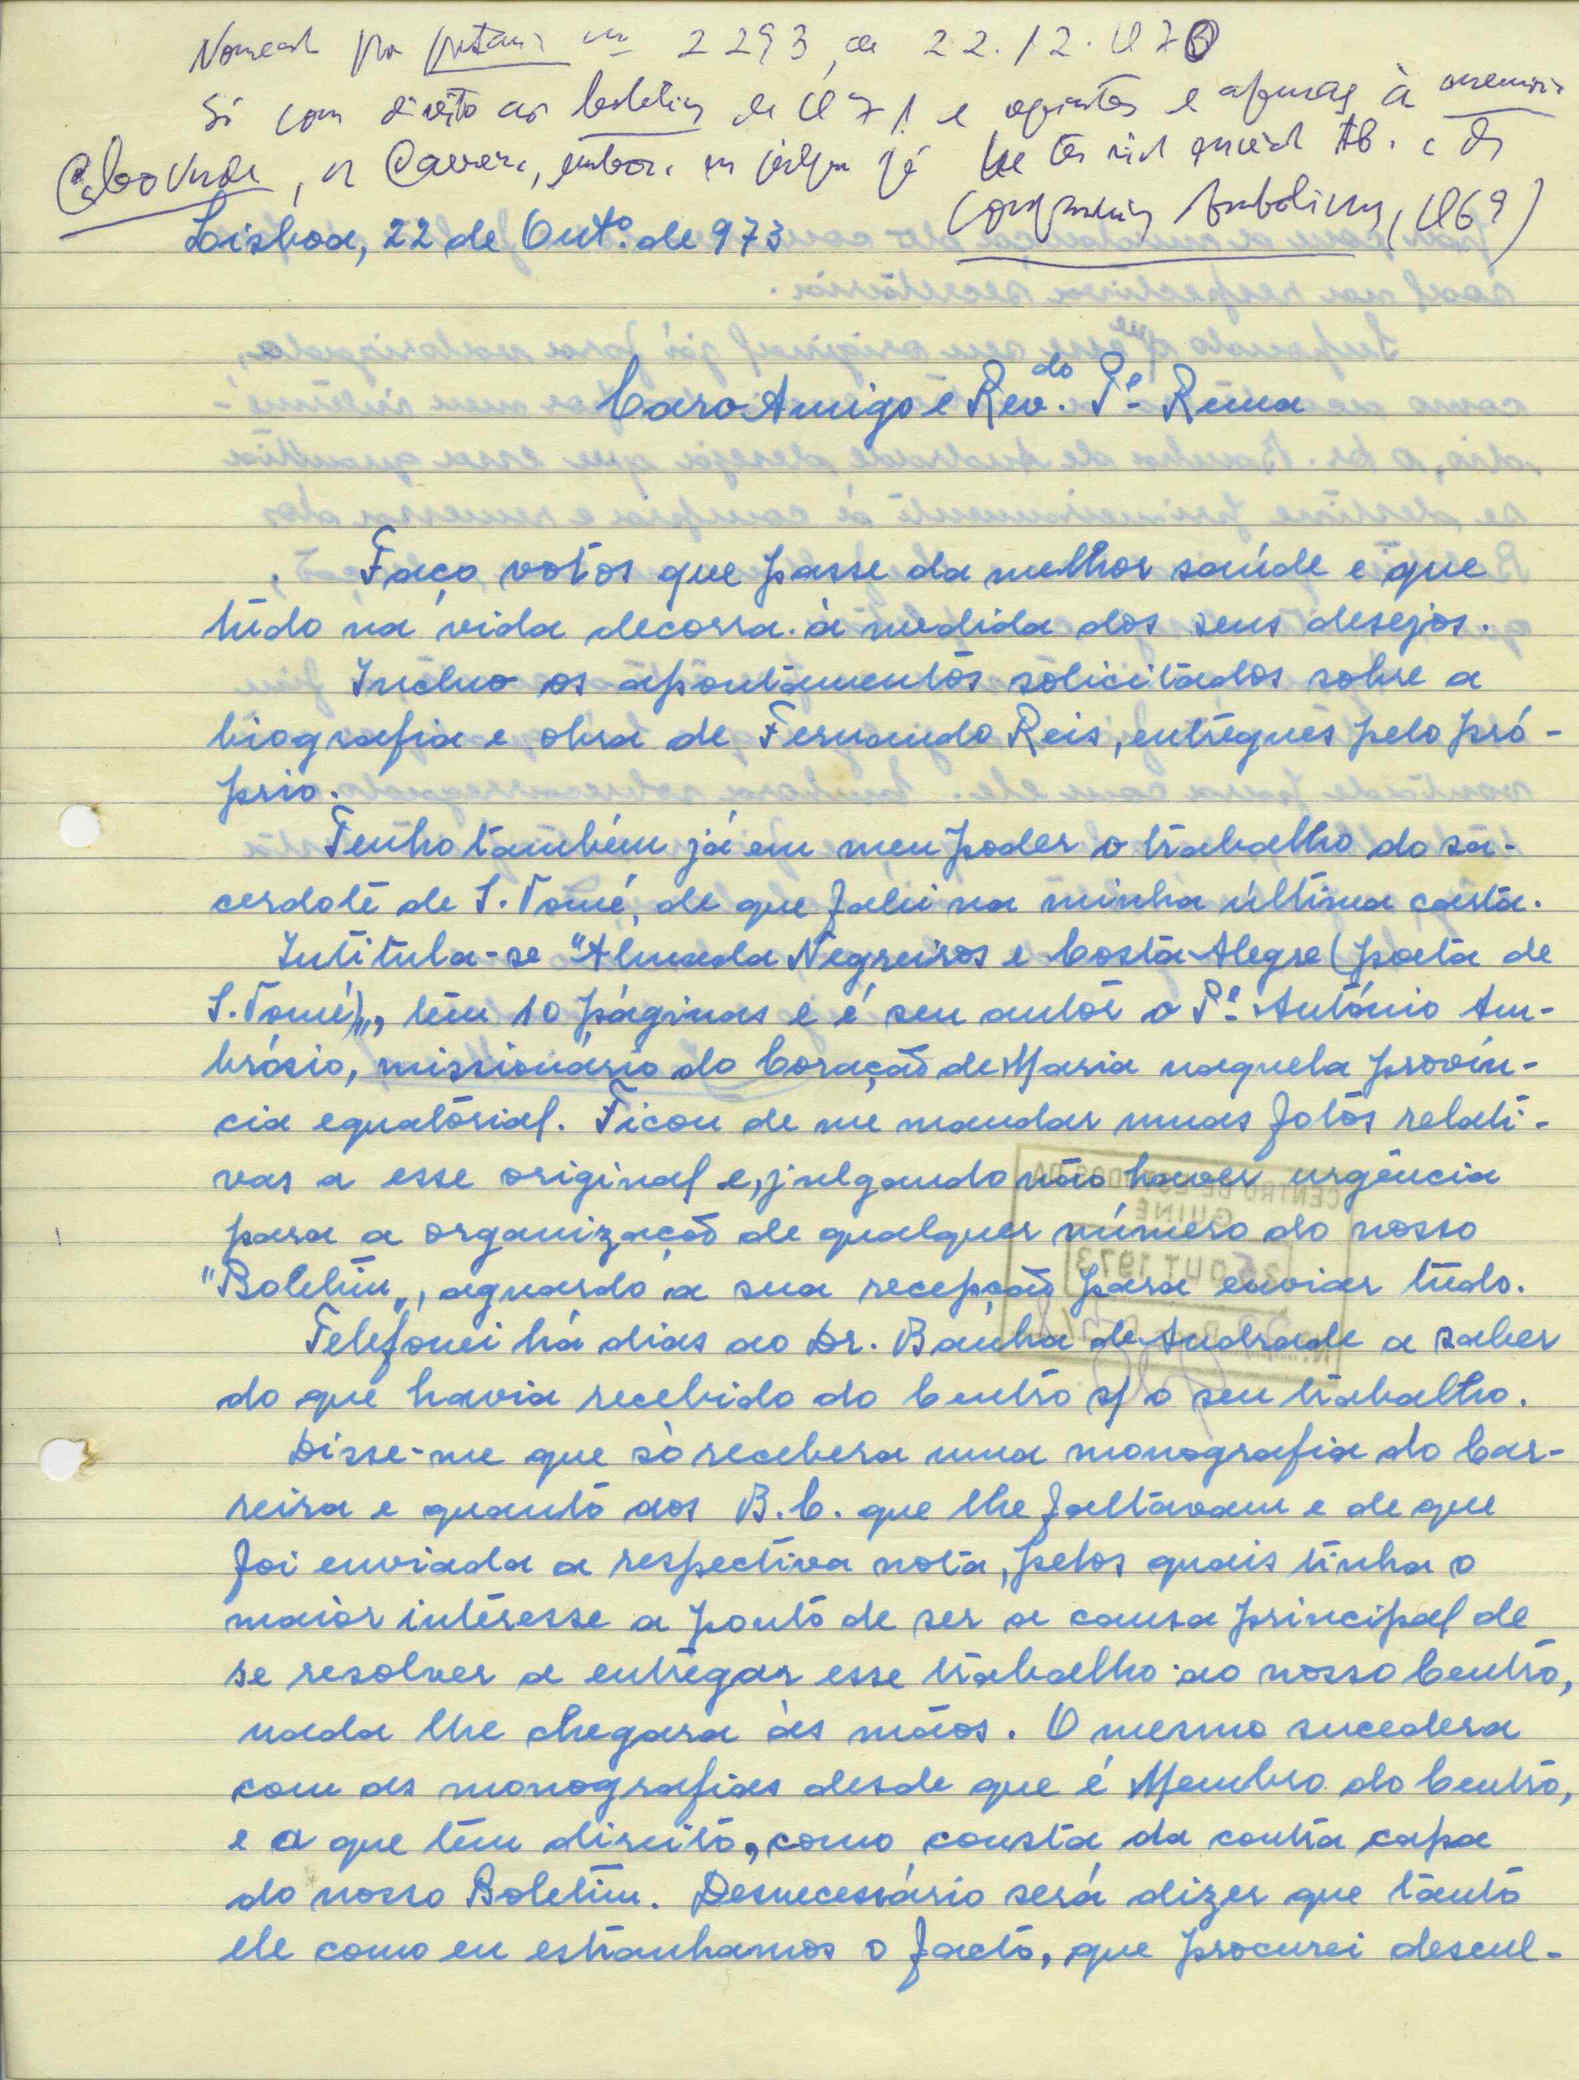 Nomeado por portaria nº 2293, de 22.12.1970
Só com direito ao boletim de 1971 e
Cabo Verde, embora já
Lisboa, 22 de Outº. de 973
1969)
Caro Amigo e Rev.do Pe. Rema
Faço votos que passe da melhor saúde e que
tudo na vida decorra à medida dos seus desejos.
Incluo os apontamentos solicitados sobre a
biografia e obra de Fernando Reis, entregues pelo pró-
prio.
Tenho também já em meu poder o trabalho do sa-
cerdote de S. Tomé, de que falei na minha última carta.
Intitula-se "Almada Negreiros e Costa Alegre (poeta de
S. Tomé)", tem 10 páginas e é seu autor o Pe. António Am-
brósio, missionário do Coração de Maria naquela provín-
cia equatorial. Ficou de me mandar umas fotos relati-
vas a esse original e, julgando não haver urgência
para a organização de qualquer número do nosso
"Boletim", aguardo a sua recepção para enviar tudo.
Telefonei há dias ao Dr. Banha de Andrade a saber
do que havia recebido do Centro s/ o seu trabalho.
Disse-me que só recebera uma monografia do Car-
reira e quanto aos B.C. que lhe faltavam e de que
foi enviada a respectiva nota, pelos quais tinha o
maior interesse a ponto de ser a causa principal de
se resolver a entregar esse trabalho ao nosso Centro,
nada lhe chegara às mãos. O mesmo sucedera
com as monografias desde que é Membro do Centro,
e a que tem direito, como consta da contra capa
do nosso Boletim. Desnecessário será dizer que tanto
ele como eu estranhamos o facto, que procurei descul-
CENTRO DE ESTUDOS DA
GUINÉ
OUT 1973